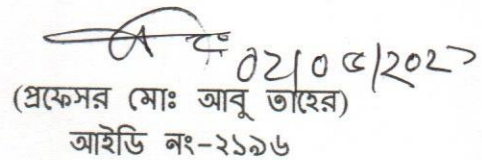 ০২/০৫/২০২১
(প্রফেসর মোঃ আবু তাহের)
আইডি নং-২১৯৬